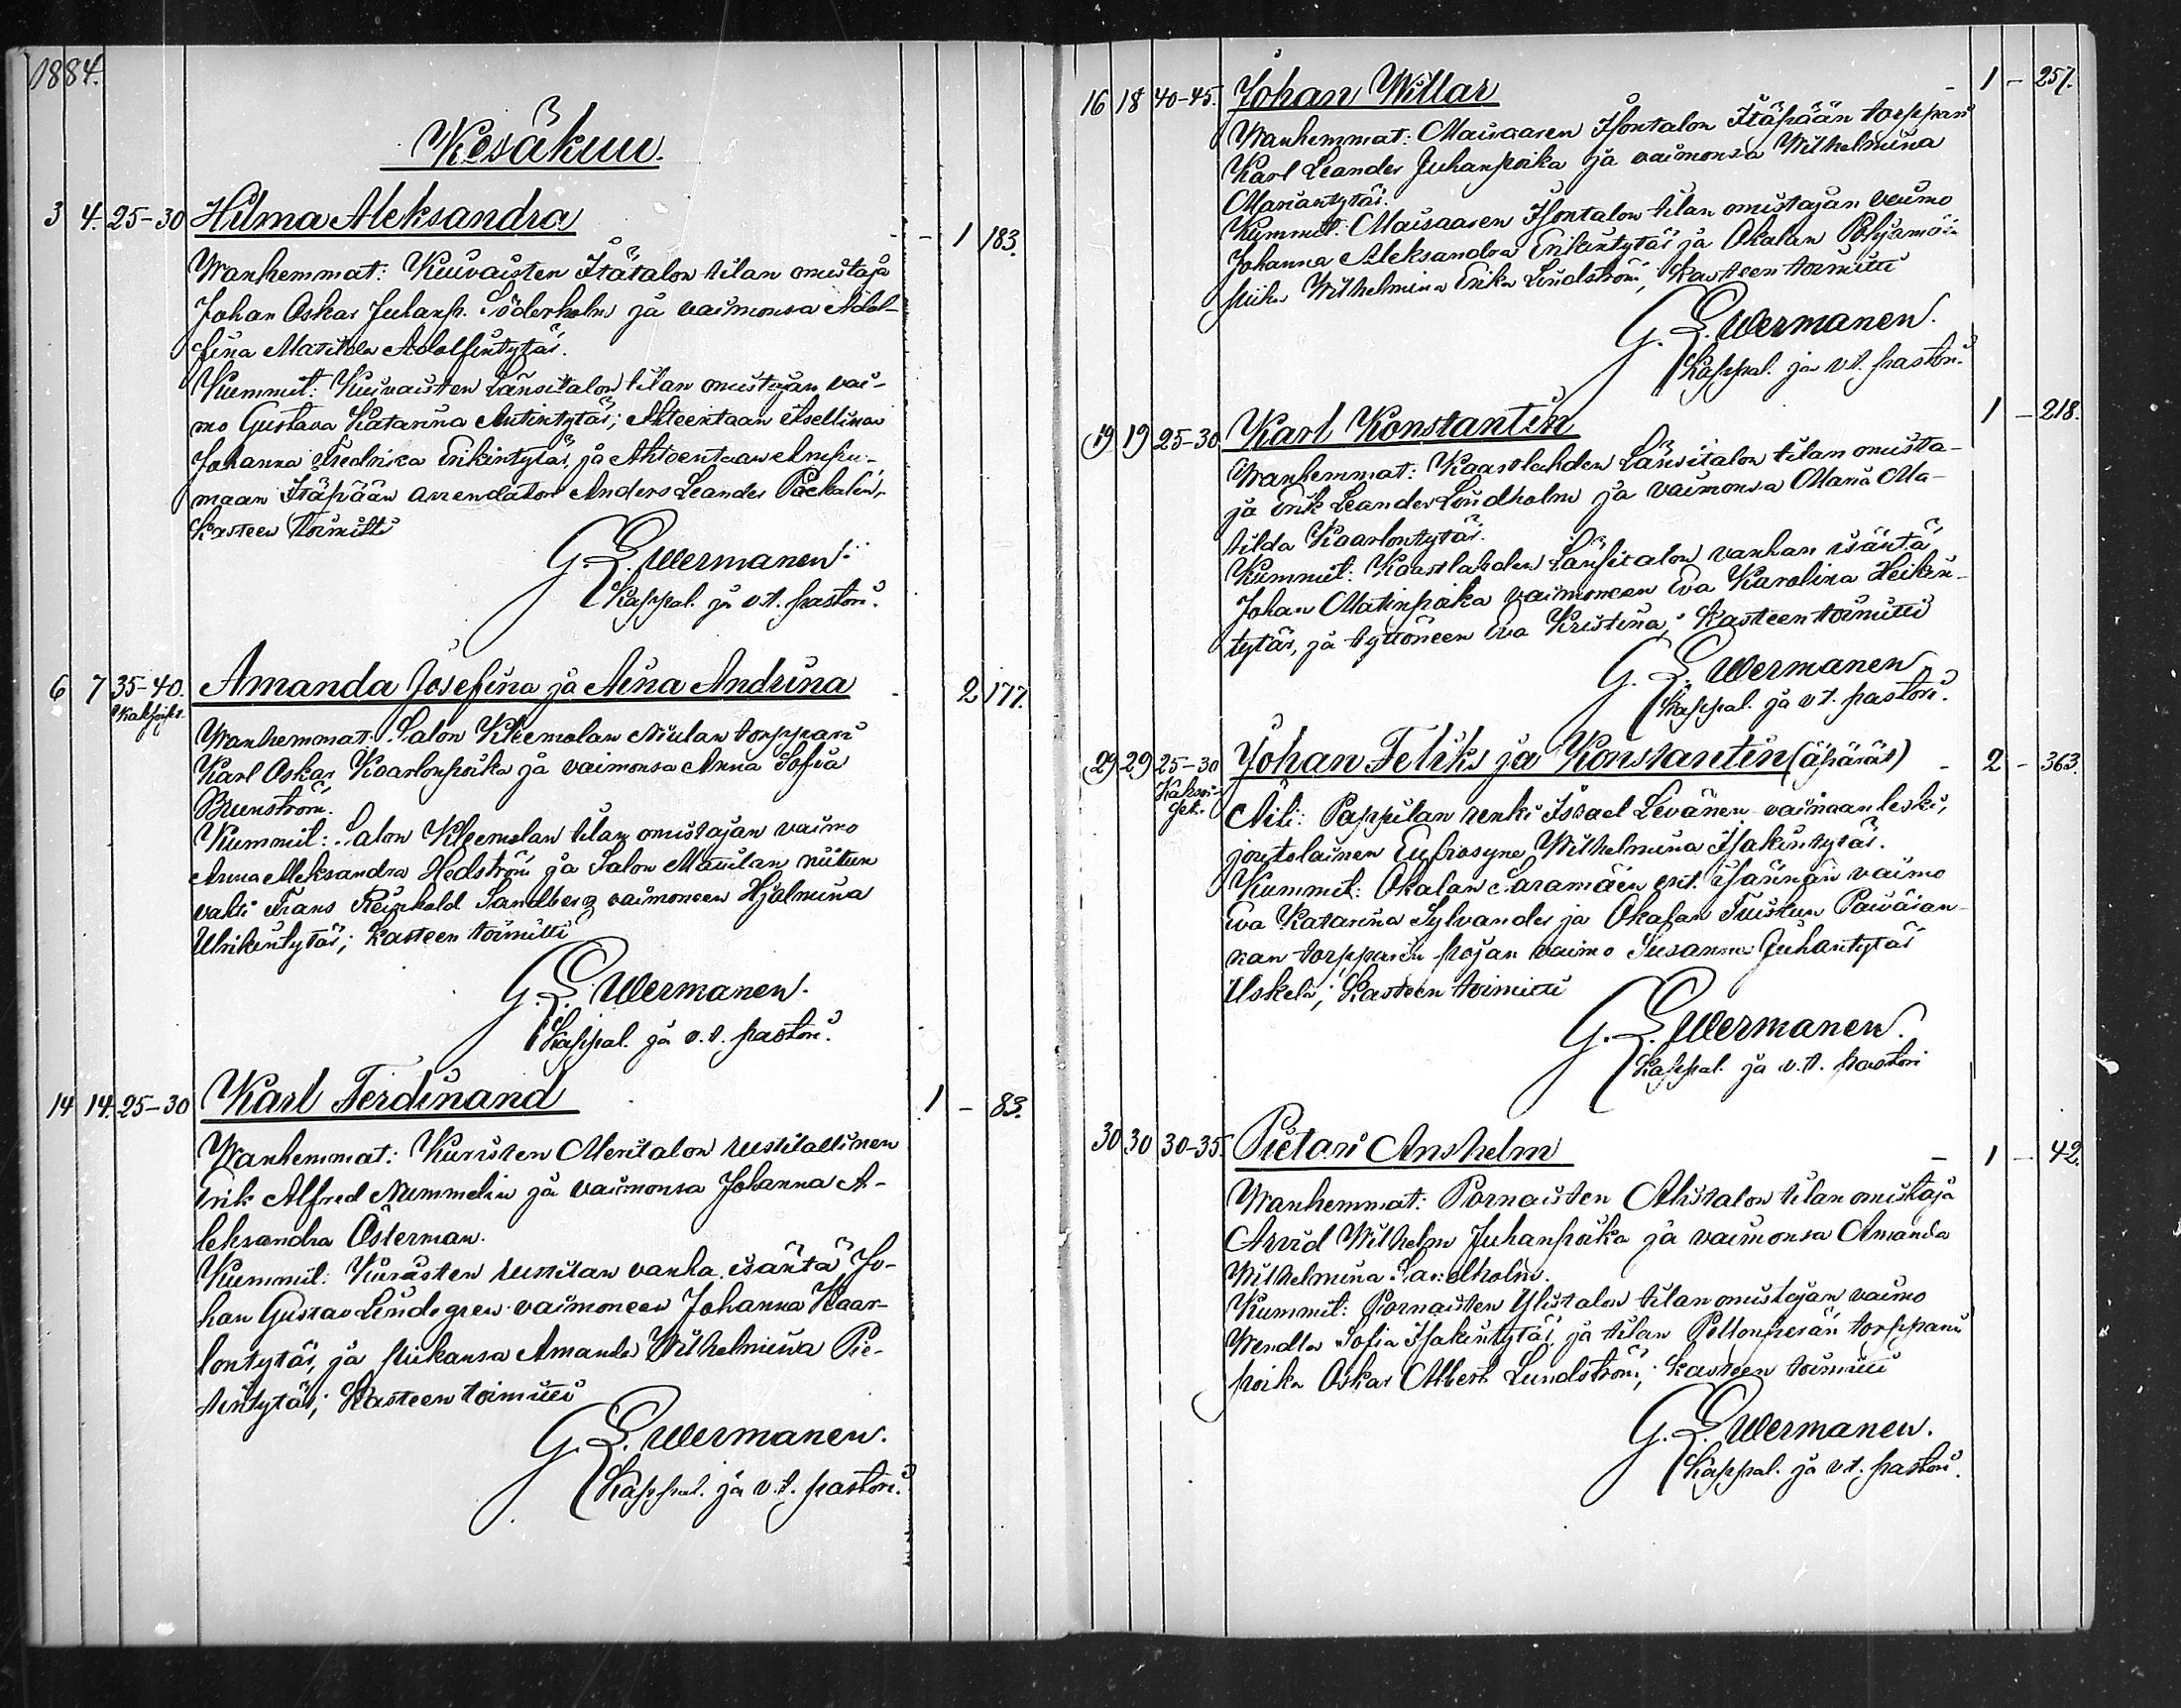 1884.
Kesäkuu.
3 4. 25-30 Hilma Aleksandra - - 1 183.
Wanhemmat: Kuivaisten Itätalon tilan omistaja
Johan Oskar Juhanp. Söderholm ja vaimonsa Adol-
fina Matilda Adolfintytär.
Kummit: Kuivaisten Länsitalon tilan omistajan vai-
mo Gustava Katarina Antintytär;
Johanna Fredrika Erikintytär, ja
maan Itäpään arrendatori Anders Leander
Kasteen toimitti
G. E. Wermanen.
Kappal. ja v.t. pastori.
6 7 35-40. Amanda Josefina ja Aina Andrina - 2 177.
Wanhemmat: Salon Kleemolan Niulan torppari
Karl Oskar Kaarlonpoika ja vaimonsa Anna Sofia
Brunström.
Kummit: Salon Kleemolan tilan omistajan vaimo
Anna Aleksandra Hedström ja Salon Mauulan niitun
vahti Frans Reinhold Sandberg vaimoneen Hjalmina
Ulrikintytär; kasteen toimitti
G. E. Wermanen.
Kappal. ja v.t. pastori.
14 14. 25-30 Karl Ferdinand 1 - 83.
Wanhemmat: Kuristen Meritalon
Erik Alfred Nummelin ja vaimonsa Johanna A-
leksandra Österman.
Kummit: vanha isäntä Jo-
han Gustav Lindegren vaimoneen Johanna Kaar-
lontytär, ja piikansa Amanda Wilhelmina Pie-
tintytär; Kasteen toimitti
G. E. Wermanen.
Kappal. ja v.t. pastori.
16 18 40-45. Johan Willar - 1 - 257.
Wanhemmat: Maisaaren Isontalon Itäpään torppari
Karl Leander Juhanpoika ja vaimonsa Wilhelmina
Mariantytär.
Kummit: Maisaaren Isontalon tilan omistajan vaimo
Johanna Aleksandra Erikintytär ja Okalan
piika Wilhelmina Erika Lindström; Kasteen toimitti
G. E. Wermanen.
Kappal. ja v.t. pastori.
19 19 25-30 Karl Konstantin 1 - 218.
Wanhemmat: Kaarlahden Länsitalon tilan omista-
ja Erik Leander Lindholm ja vaimonsa Maria Ma-
tilda Kaarlontytär.
Kummit: Kaarlahden Länsitalon vanhan isäntä
Johan Matinpoika vaimoneen Eva Karolina Heikin-
tytär, ja tyttöneen Eva Kristina; Kasteen toimitti
G. E. Wermanen
Kappal. ja v.t. pastori.
29 29 25-30 Johan Feliks ja Konstantin (äpärät) - 2 - 363.
Kaksoi-
set.
Äiti: Pappilan renki Isael Levänen vaimaan leski,
joutolainen Eufrosyne Wilhelmina Isakintytär.
Kummit: Okalan Saramäen ent. isännän vaimo
Eva Katarina Sylvander ja Okalan Tuiskun Päiväran-
nan torpparin pojan vaimo Susanna Juhantytär
Uskela; Kasteen toimitti
G. E. Wermanen.
Kappal. ja v.t. pastori
30 30 30-35. Pietari Anshelm - 1 - 42.
Wanhemmat: Pornaisten Alistalon tilan omistaja
Arvid Wilhelm Juhanpoika ja vaimonsa Amanda
Wilhelmina Sandholm.
Kummit: Pornaisten Ylistalon tilan omistajan vaimo
Wendla Sofia Isakintytär, ja tilan Pellonperän torpparin
poika Oskar Albert Lundström; Kasteen toimitti
G. E. Wermanen.
Kappal. ja v.t. pastori.